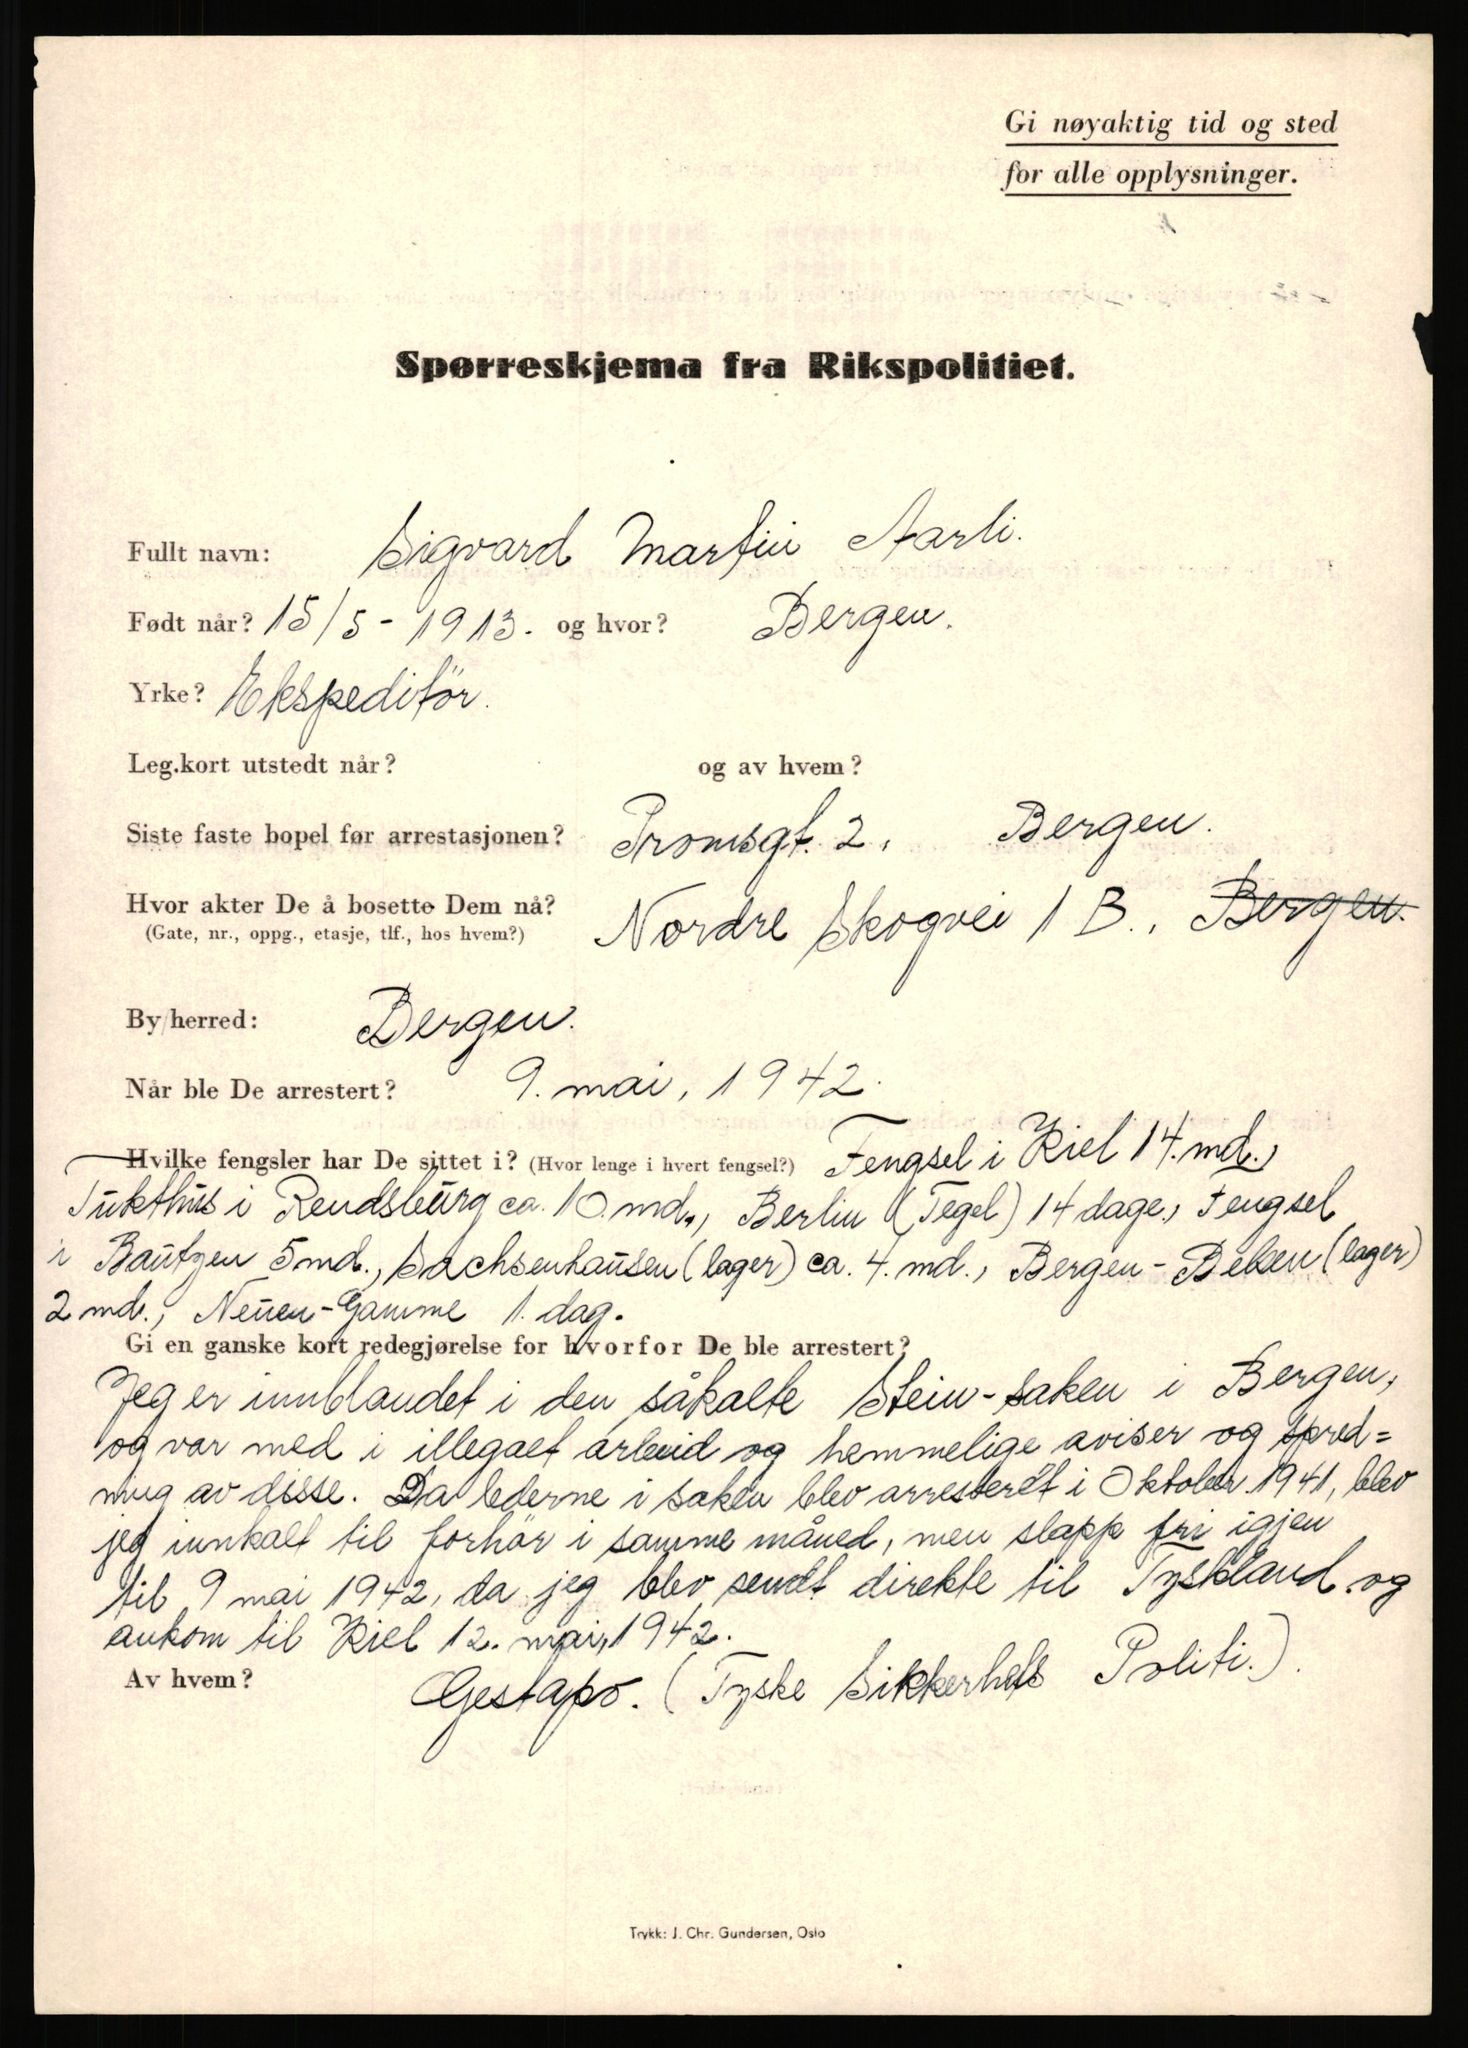 Gi nøyaktig tid og sted
for alle opplysninger.
Spørreskjema fra Rikspolitiet.
Fullt navn: Sigvard Martin Aarli.
Født når? 15/5 - 1913. og hvor? Bergen.
Yrke? Ekspeditör.
Leg.kort utstedt når? og av hvem?
Siste faste bopel før arrestasjonen? Tromsgt. 2, Bergen.
Hvor akter De å bosette Dem nå? Nordre Skogvei 1 B., Bergen.
(Gate, nr., oppg., etasje, tlf., hos hvem?)
By/herred: Bergen.
Når ble De arrestert? 9. mai, 1942.
Hvilke fengsler har De sittet i? (Hvor lenge i hvert fengsel?) Fengsel i Kiel 14. md.,
Tukthus i Rendsburg ca. 10. md., Berlin (Tegel) 14 dage, Fengsel
i Bautzen 5 md., Sachsenhausen (lager) ca. 4. md., Bergen-Belsen (lager)
2 md., Neuen-Gamme 1. dag.
Gi en ganske kort redegjørelse for hvorfor De ble arrestert?
Jeg er innblandet i den såkalte Stein-saken i Bergen,
og var med i illegalt arbeid og hemmelige aviser og spred=
ning av disse. Da lederne i saken blev arresteret i Oktober 1941, blev
jeg innkalt til forhör i samme måned, men slapp fri igjen
til 9 mai 1942, da jeg blev sendt direkte til Tyskland og
ankom til Kiel 12. mai, 1942.
Av hvem? Gestapo. (Tyske Sikkerhets Politi.).
Trykk: J. Chr. Gundersen, Oslo